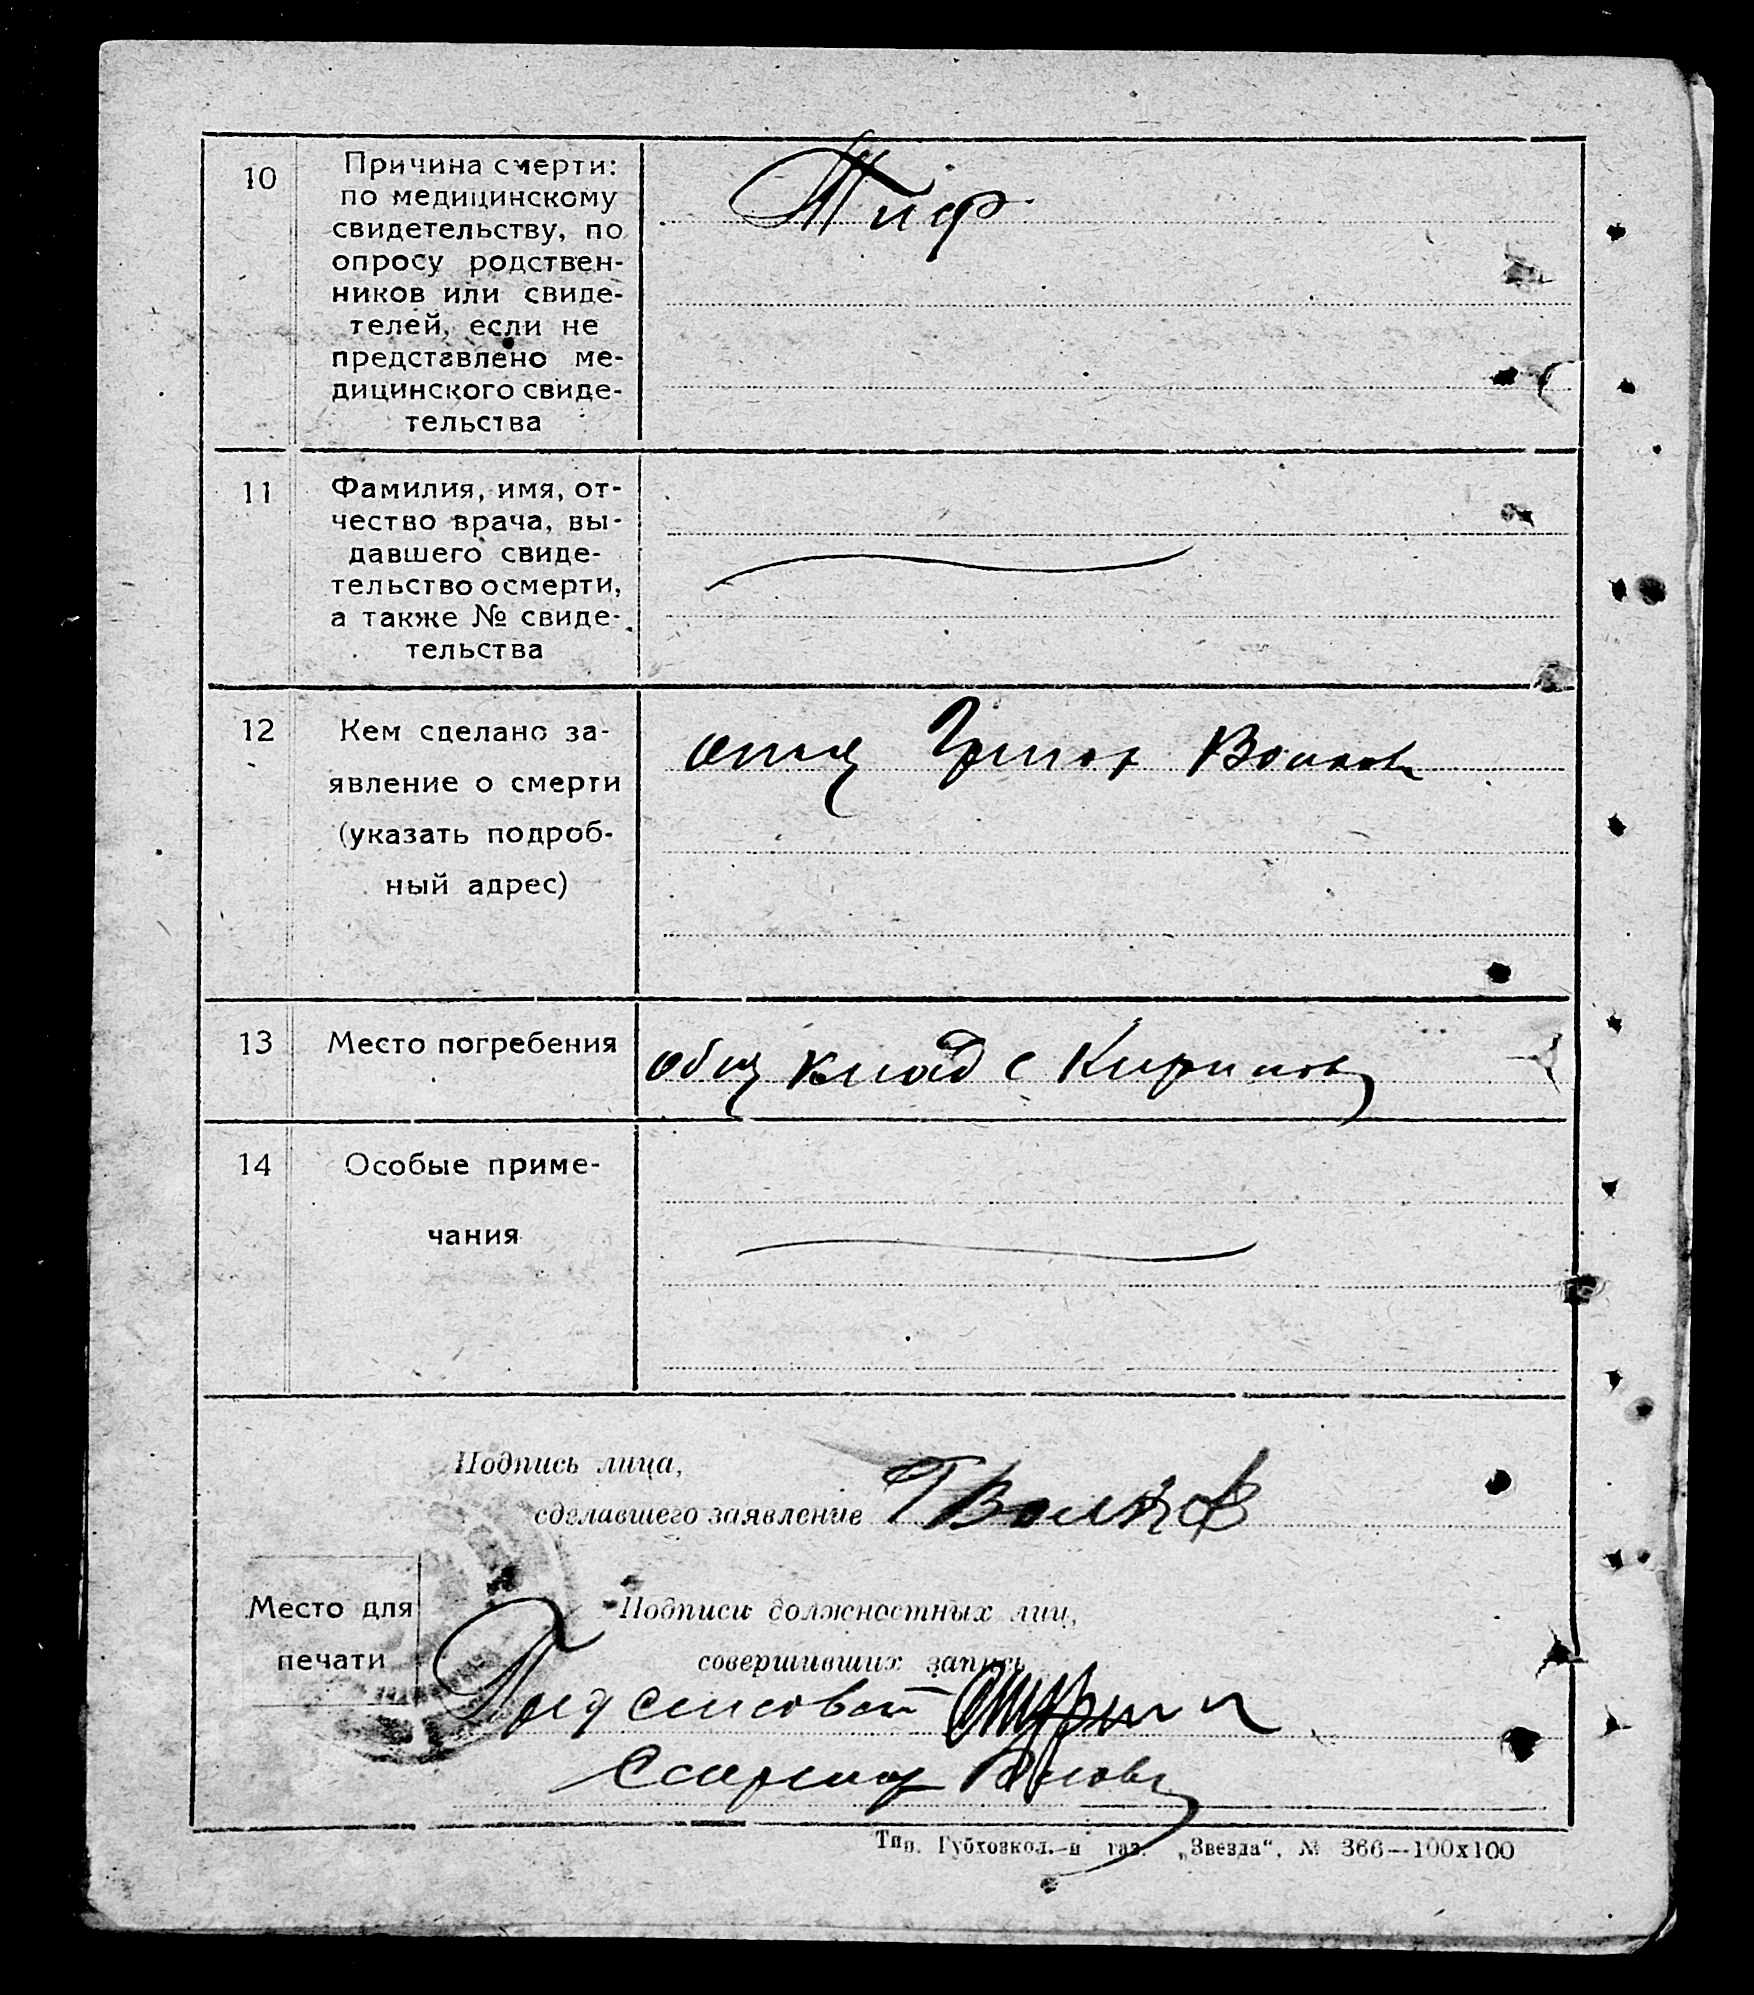 10
Причина смерти:
по медицинскому
свидетельству, по
опросу родствен-
ников или свиде-
телей, если не
представлено ме-
дицинского свиде-
тельства
Тиф
11
Фамилия, имя, от-
чество врача, вы-
давшего свиде-
тельство о смерти,
а также № свиде-
тельства
12
Кем сделано за-
явление о смерти
(указать подроб-
ный адрес)
отец Волков
13
Место погребения
общ клад с
14
Особые приме-
чания
Подпись лица,
сделавшего заявление Г Волков
Место для
печати
Подписи должностных лиц,
совершивших запись
Пред
Тип. Губхозкол. и газ. „Звезда“, № 366--100х100